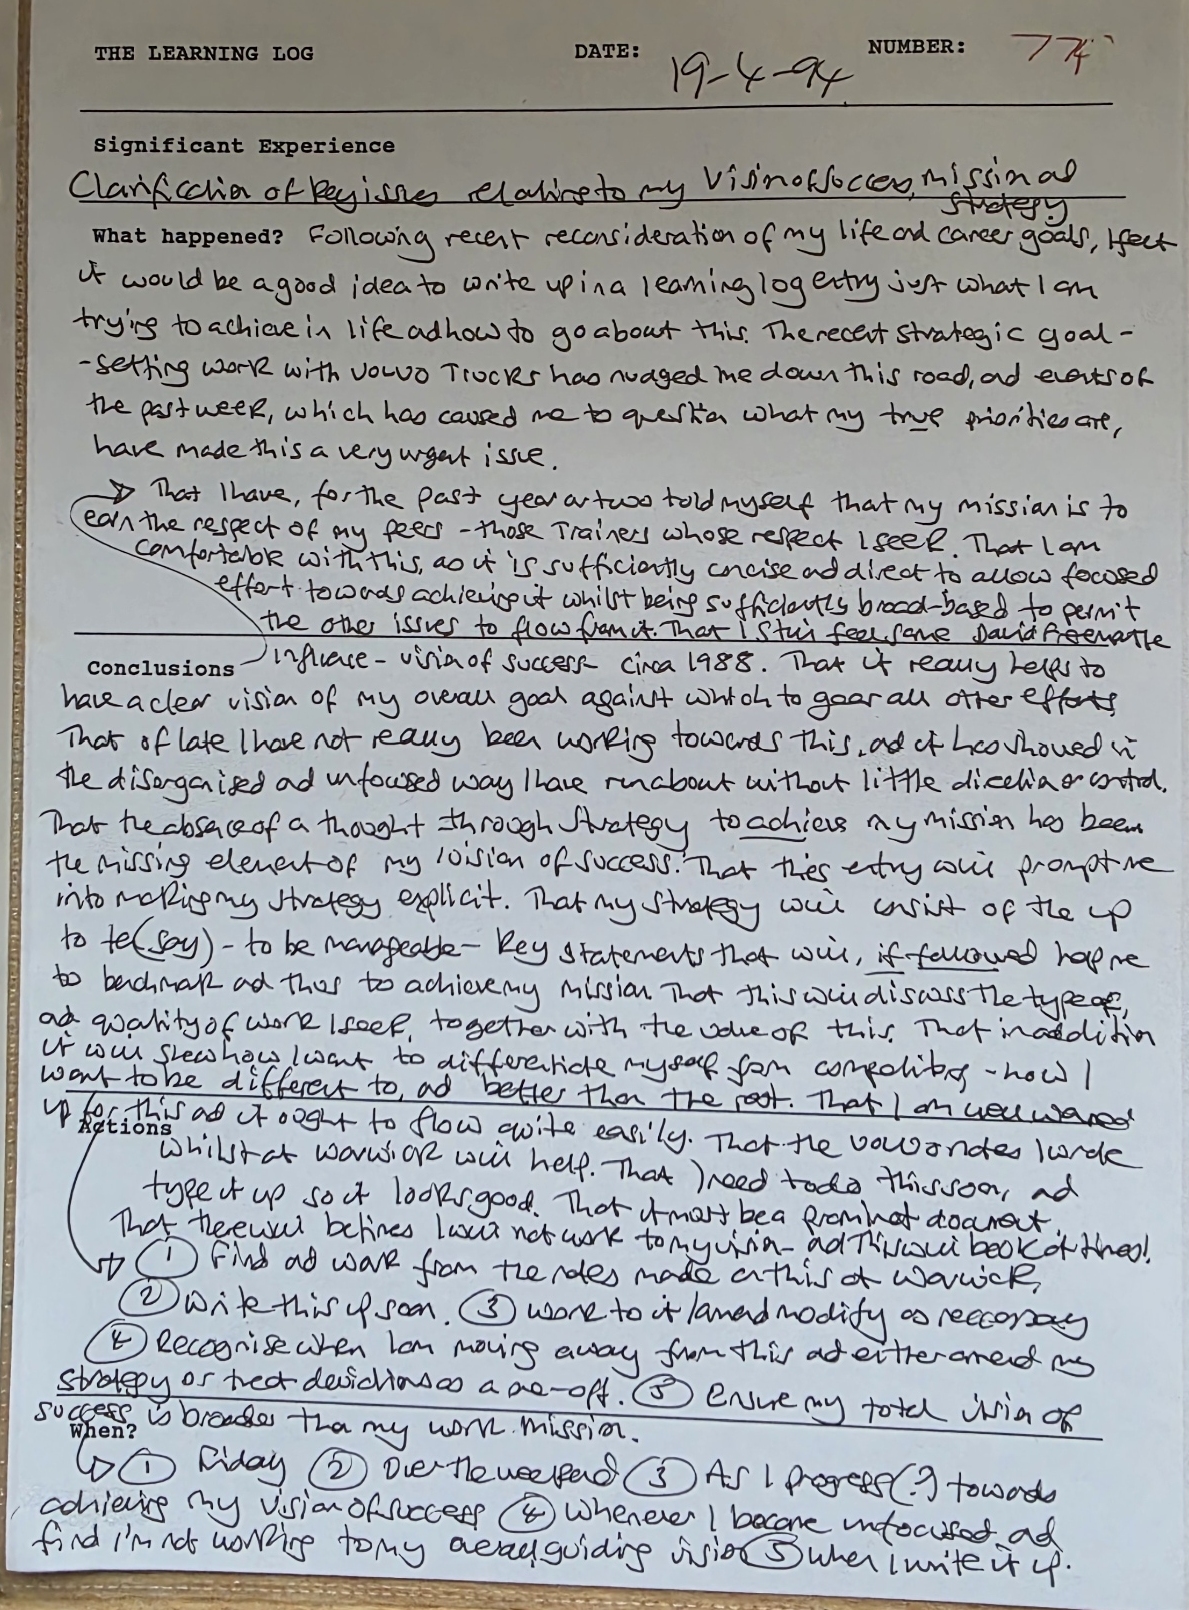 THE LEARNING LOG DATE: 19-4-94 NUMBER: 774
Significant Experience
Clarification of key issues relating to my Vision of success, mission ad
strategy
What happened? Following recent reconsideration of my life and career goals, I felt
it would be a good idea to write up in a learning log entry just what I am
trying to achieve in life ad how to go about this. The recent strategic goal-
-setting work with VOLVO TRUCKS has nudged me down this road, ad events of
the past week, which has caused me to question what my true priorities are,
have made this a very urgent issue.
That I have, for the past year or two told myself that my mission is to
earn the respect of my peers - those Trainers whose respect I seek. That I am
comfortable with this, as it is sufficiently concise ad direct to allow focused
effort towards achieving it whilst being sufficiently broad-based to permit
the other issues to flow from it. That I still feel some David Freemantle
Conclusions influence - vision of success circa 1988. That it really helps to
have a clear vision of my overall goal against which to gear all other efforts
That of late I have not really been working towards this, ad it has showed in
the disorganised ad unfocused way I have run about without little direction or control.
That the absence of a thought through strategy to achieve my mission has been
the missing element of my vision of success. That this entry will prompt me
into making my strategy explicit. That my strategy will consist of the up
to te (say) - to be manageable - key statements that will, if followed help me
to benchmark ad thus to achieve my mission. That this will discuss the type of,
ad quality of work I seek, together with the value of this. That in addition
it will show how I want to differentiate myself from competitors - how I
want to be different to, ad better than the rest. That I am well warmed
up for this ad it ought to flow quite easily. That the Volvo notes I wrote
Actions
whilst at Warwick will help. That I need to do this soon, ad
type it up so it looks good. That it must be a prominent document.
That there will be times I will not work to my vision - ad this will be OK at times!
① Find ad work from the notes made on this at Warwick,
② Write this up soon. ③ Work to it /amend modify as necessary
④ Recognise when I am moving away from this ad either amend my
strategy or treat deviations as a one-off. ⑤ Ensure my total vision of
success is broader than my work mission.
When?
① Friday ② Over the weekend ③ As I progress (?) towards
achieving my vision of success ④ Whenever I become unfocused ad
find I'm not working to my overall guiding vision ⑤ When I write it up.